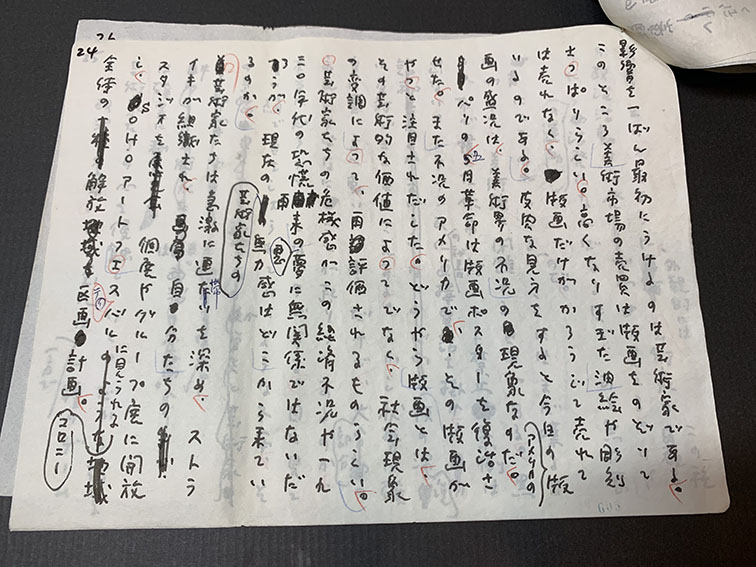 24
影響を一ばん最初にうけるのは芸術家である。
このところ美術市場の売買は版画をのぞいて
さっぱりらしい。高くなりすぎた油絵や彫刻
は売れなく、版画だけがかろうじて売れて
いるのである。皮肉な見方をすると今日の版
画の盛況は、アメリカの美術界の不況の現象なのだ。
パリの五月革命は版画ポスターを復活さ
せた。また不況のアメリカで、その版画が
やっと注目されだした。どうやら版画とは、
その芸術的な価値によってでなく、社会現象
の変調によって、再評価されるものらしい。
芸術家たちの危機感がこの経済不況や一九
三〇年代の恐慌再来の悪夢に無関係ではないだ
ろうが、現在の芸術家たちの無力感はどこから来てい
るのか。
芸術家たちは急激に連帯を深め、ストラ
イキが組織され、自分たちの
スタジオを個展やグループ展に開放
し、SOHOアートフェスバルに見られる
全体の解放計画。コロニー